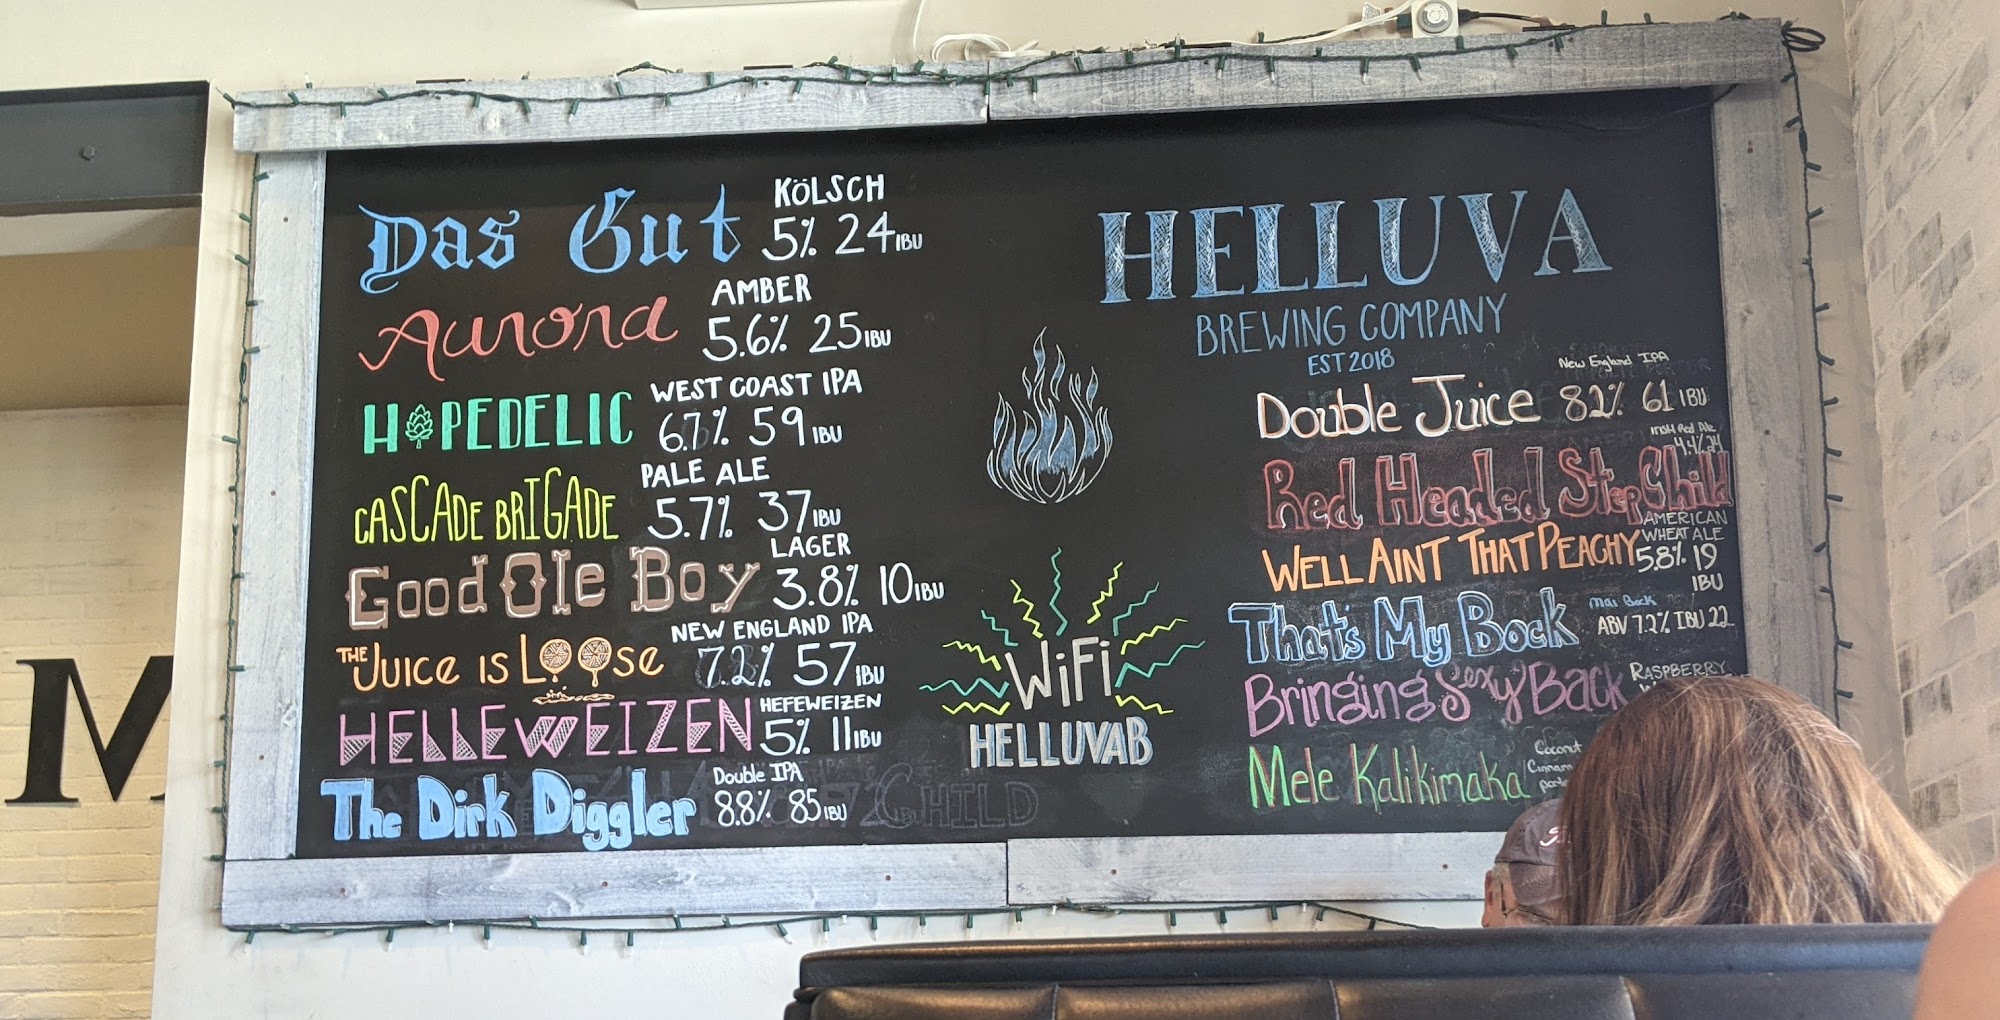 Das Gut KÖLSCH
5% 24 IBU
Aurora AMBER
5.6% 25 IBU
HOPEDELIC WEST COAST IPA
6.7% 59 IBU
CASCADE BRIGADE PALE ALE
5.7% 37 IBU
Good Ole Boy LAGER
3.8% 10 IBU
THE JUICE IS LOOSE NEW ENGLAND IPA
7.2% 57 IBU
HELLEWEIZEN HEFEWEIZEN
5% 11 IBU
The Dirk Diggler Double IPA
8.8% 85 IBU
CHILD
WiFi
HELLUVAB
HELLUVA
BREWING COMPANY
EST 2018
New England IPA
Double Juice 8.2% 61 IBU
Irish Red Ale
4.4% 24
Red Headed Step Child
WELL AINT THAT PEACHY AMERICAN
WHEAT ALE
5.8% 19
IBU
That's My Bock Mai Bock
ABV 7.2% IBU 22
Bringing Sexy Back RASPBERRY
Mele Kalikimaka Coconut
M